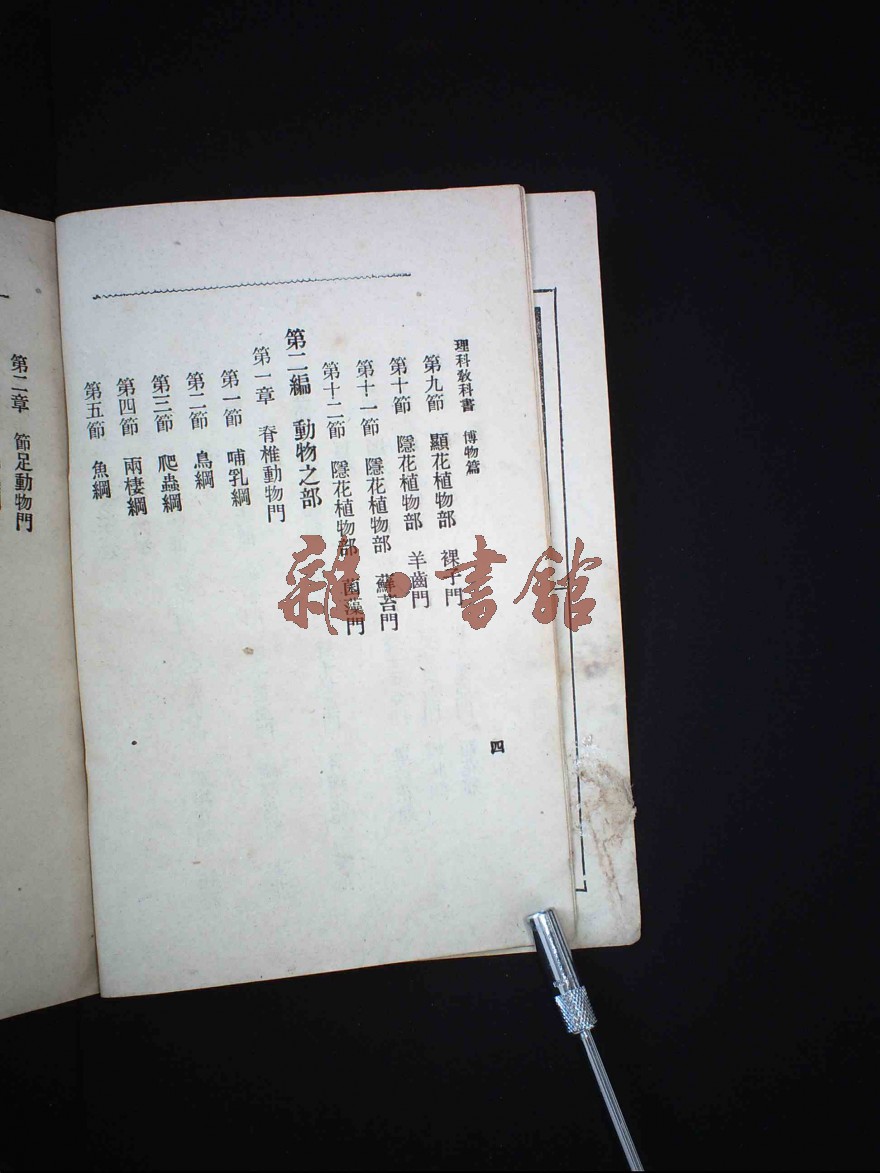 理科教科書 博物篇
四
第九節 顯花植物部 裸子門
第十節 隱花植物部 羊齒門
第十一節 隱花植物部 蘚苔門
第十二節 隱花植物部 菌藻門
第二編 動物之部
第一章 脊椎動物門
第一節 哺乳綱
第二節 鳥綱
第三節 爬蟲綱
第四節 兩棲綱
第五節 魚綱
第二章 節足動物門
雜·書館